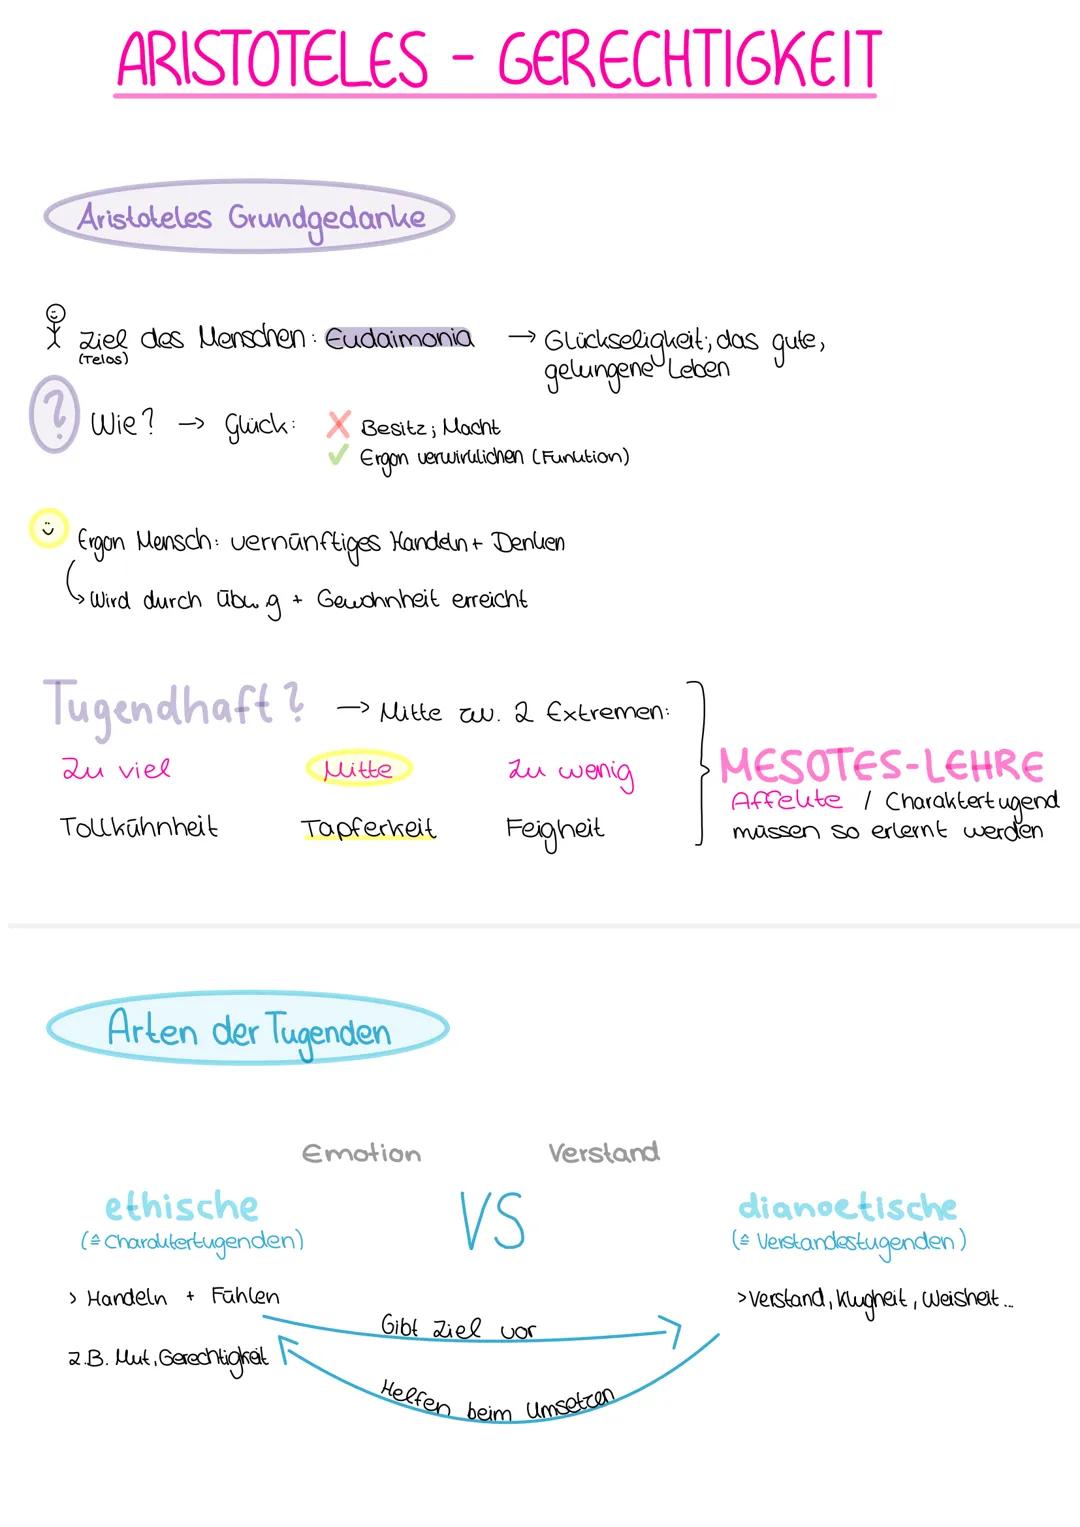 ARISTOTELES - GERECHTIGKEIT
Aristoteles Grundgedanke
Ziel des Menschen: Eudaimonia → Glückseligkeit; das gute,
(Telos)
gelungene Leben
? Wie? → Glück: X Besitz; Macht
✓ Ergon verwirklichen (Funktion)
Ergon Mensch: vernünftiges Handeln + Denken
Wird durch Übung + Gewohnheit erreicht
Tugendhaft? → Mitte zw. 2 Extremen:
Zu viel Mitte Zu wenig
MESOTES-LEHRE
Affekte / Charaktertugend
Tollkühnheit Tapferkeit Feigheit
müssen so erlernt werden
Arten der Tugenden
Emotion Verstand
ethische VS dianoetische
(≙ Charaktertugenden) (≙ Verstandestugenden)
> Handeln + Fühlen >Verstand, Klugheit, Weisheit...
Gibt Ziel vor
z.B. Mut, Gerechtigkeit
Helfen beim Umsetzen